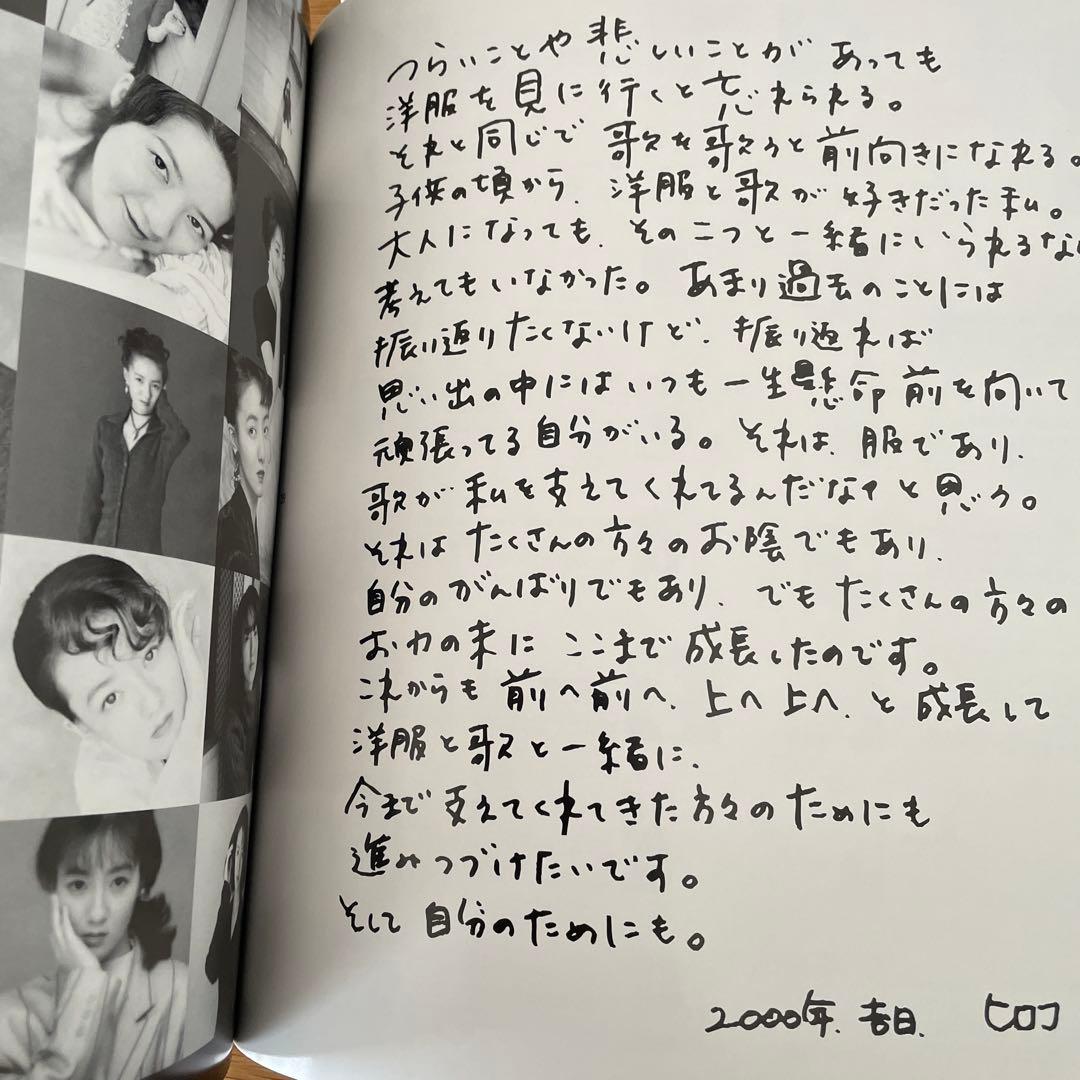 つらいことや悲しいことが あっても
洋服を見に行くと忘れられる。
それと同じで 歌を歌うと前向きになれる。
子供の頃から、洋服と歌が好きだった私。
大人になっても、その二つと一緒にいられるな
考えてもいなかった。あまり過去のことには
振り返りたくないけど、振り返れば
思い出の中にはいつも一生懸命前を向いて
頑張ってる自分がいる。それは、服であり、
歌が私を支えてくれてるんだなァと思う。
それはたくさんの方々のお陰でもあり、
自分のがんばりでもあり、でもたくさんの方々の
お力の末に ここまで成長したのです。
これからも 前へ前へ、上へ上へ、と成長して
洋服と歌と一緒に、
今まで支えてくれてきた方々のためにも
進みつづけたいです。
そして自分のためにも。
2000年、吉日、 ヒロコ